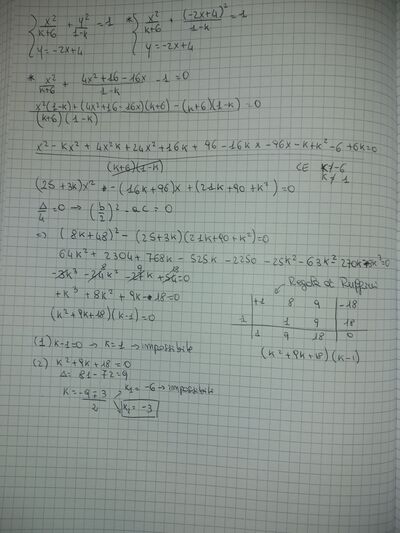 { x²/(k+6) + y²/(1-k) = 1   * { x²/(k+6) + (-2x+4)²/(1-k) = 1
y = -2x+4   y = -2x+4
* x²/(k+6) + (4x²+16-16x)/(1-k) - 1 = 0
(x²(1-k) + (4x²+16-16x)(k+6) - (k+6)(1-k))/((k+6)(1-k)) = 0
x² - kx² + 4x²k + 24x² + 16k + 96 - 16kx - 96x - k + k² - 6 + 6k = 0
(k+6)(1-k)   CE k ≠ -6
k ≠ 1
(25+3k)x² - (16k+96)x + (21k+90+k²) = 0
Δ/4 = 0 → (b/2)² - ac = 0
⇒ (8k+48)² - (25+3k)(21k+90+k²) = 0
64k² + 2304 + 768k - 525k - 2250 - 25k² - 63k² - 270k - 3k³ = 0
-3k³ - 24k² - 27k + 54 = 0
8 9 18
Regola di Ruffini
+k³ + 8k² + 9k - 18 = 0
+1 8 9 -18
(k² + 9k + 18)(k-1) = 0
1 1 9 18
1 9 18 0
(1) k-1=0 → k=1 → impossibile
(k² + 9k + 18)(k-1)
(2) k² + 9k + 18 = 0
Δ = 81 - 72 = 9
k = (-9 ± 3)/2   k₁ = -6 → impossibile
k₂ = -3